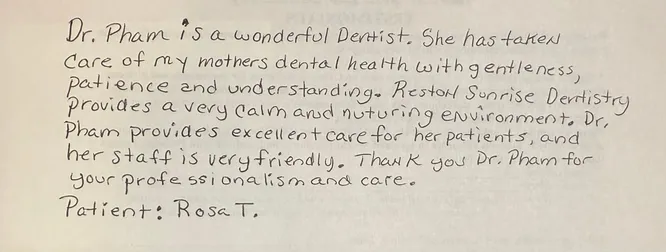 Dr. Pham is a wonderful Dentist. She has taken
care of my mothers dental health with gentleness,
patience and understanding. Reston Sunrise Dentistry
provides a very calm and nuturing environment. Dr.
Pham provides excellent care for her patients, and
her staff is very friendly. Thank you Dr. Pham for
your professionalism and care.
Patient: Rosa T.